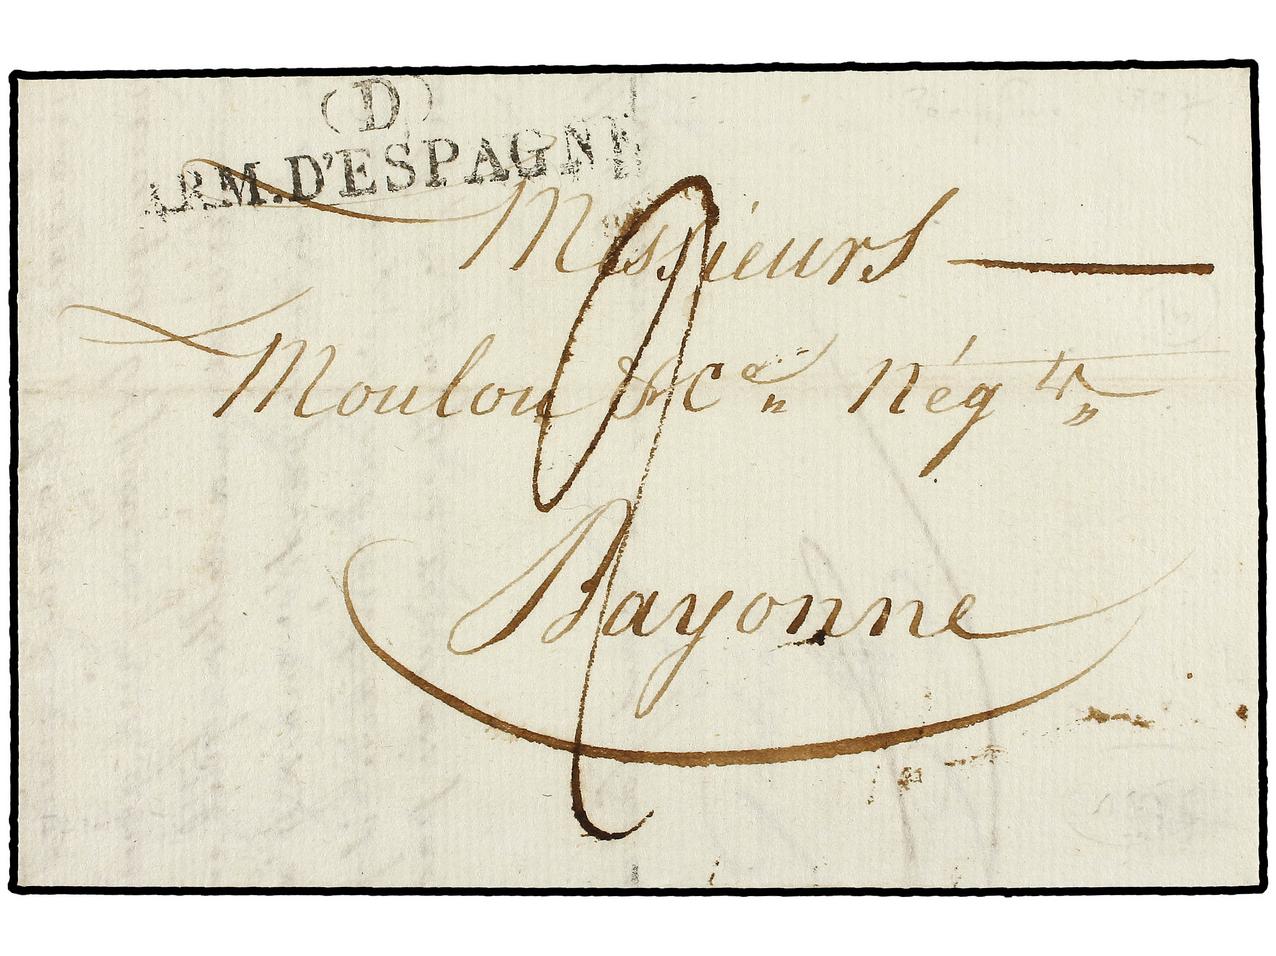 (D)
ARM. D'ESPAGNE
Messieurs
Moulou & Cie Négts
Bayonne